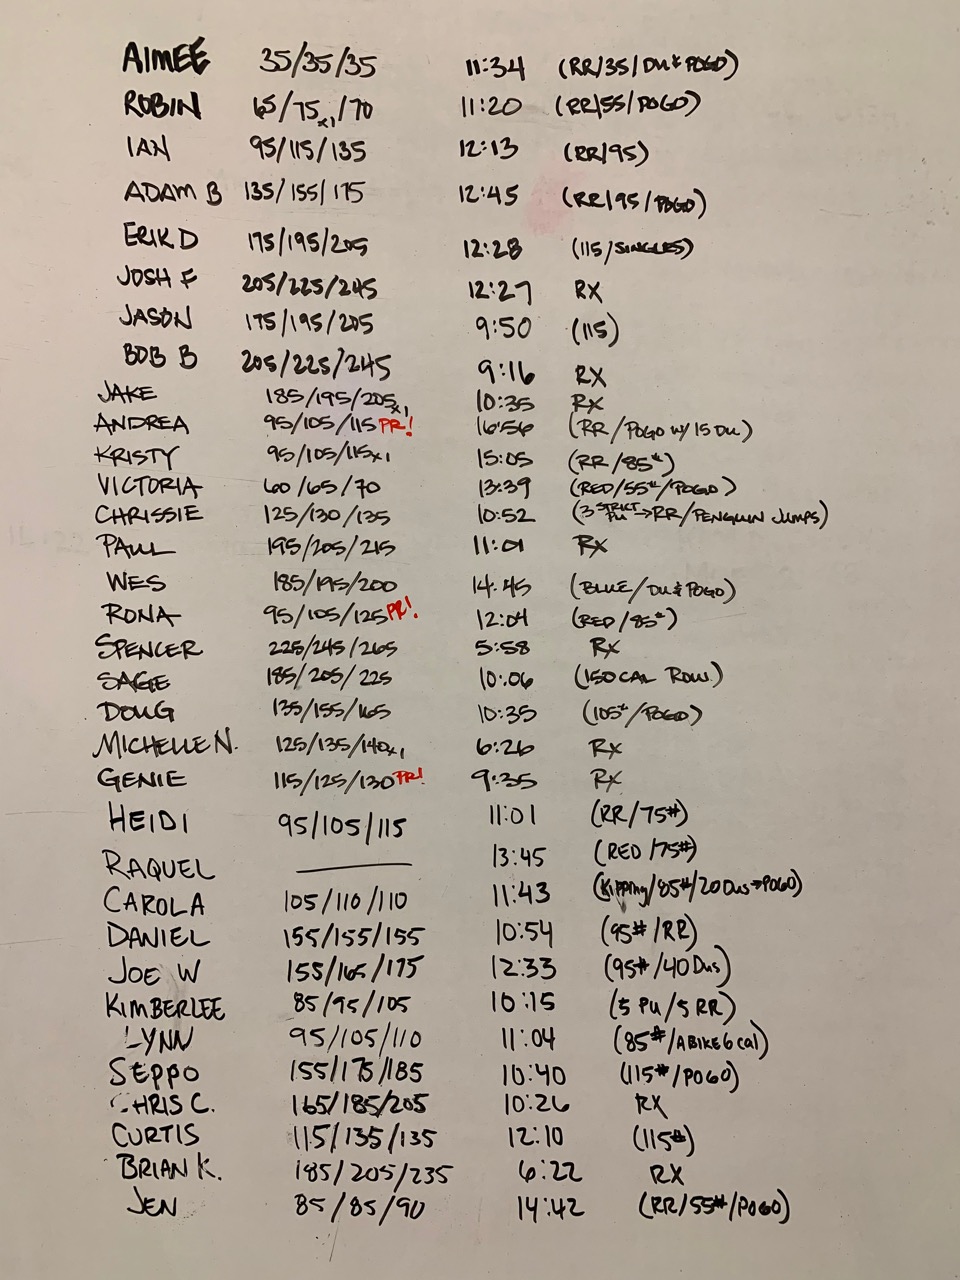 AIMEE 35/35/35 11:34 (RR/35/DU & POGO)
ROBIN 65/75x1/70 11:20 (RR/55/POGO)
IAN 95/115/135 12:13 (RR/95)
ADAM B 135/155/175 12:45 (RR/95/POGO)
ERIK D 175/195/205 12:28 (115/SINGLES)
JOSH F 205/225/245 12:27 RX
JASON 175/195/205 9:50 (115)
BOB B 205/225/245 9:16 RX
JAKE 185/195/205x1 10:35 RX
ANDREA 95/105/115 PR! 16:56 (RR/POGO W/ 15 DU)
KRISTY 95/105/115x1 15:05 (RR/85#)
VICTORIA 60/65/70 13:39 (RED/55#/POGO)
CHRISSIE 125/130/135 10:52 (3 STRICT PU→RR/PENGUIN JUMPS)
PAUL 195/205/215 11:01 RX
WES 185/195/200 14:45 (BLUE/DU & POGO)
RONA 95/105/125 PR! 12:04 (RED/85#)
SPENCER 225/245/265 5:58 RX
SAGE 185/205/225 10:06 (150 CAL ROW)
DOUG 135/155/165 10:35 (105#/POGO)
MICHELLE N. 125/135/140x1 6:26 RX
GENIE 115/125/130 PR! 9:35 RX
HEIDI 95/105/115 11:01 (RR/75#)
RAQUEL —— 13:45 (RED/75#)
CAROLA 105/110/110 11:43 (Kipping/85#/20 DUs→POGO)
DANIEL 155/155/155 10:54 (95#/RR)
JOE W 155/165/175 12:33 (95#/40 DUs)
KIMBERLEE 85/95/105 10:15 (5 PU/5 RR)
LYNN 95/105/110 11:04 (85#/A BIKE 6 cal)
SEPPO 155/175/185 10:40 (115#/POGO)
CHRIS C. 165/185/205 10:26 RX
CURTIS 115/135/135 12:10 (115#)
BRIAN K. 185/205/235 6:22 RX
JEN 85/85/90 14:42 (RR/55#/POGO)